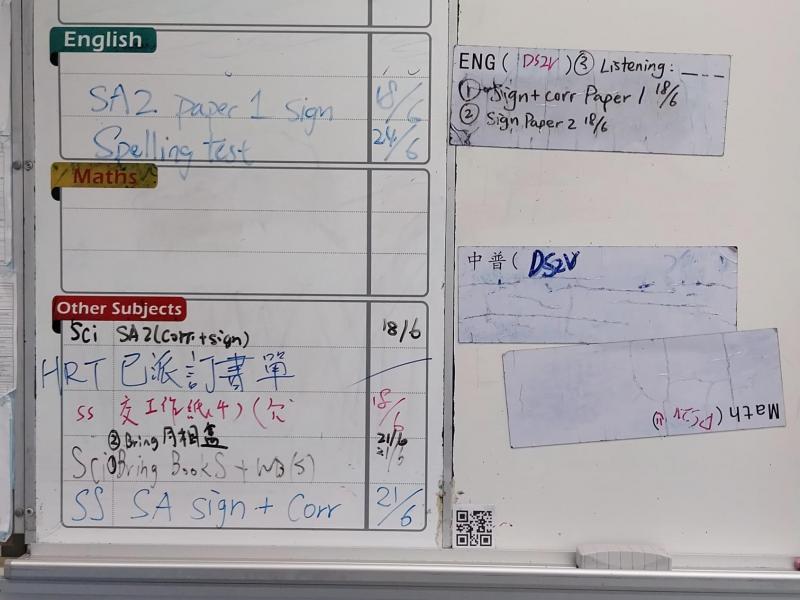 English
SA2 paper 1 sign 18/6
Spelling test 24/6
Maths
Other Subjects
Sci SA2 (corr.+sign) 18/6
HRT 已派訂書單
SS 交工作紙(4)(欠 18/6
② Bring 月相盒 21/6
Sci ① Bring Book 5 + WB(5) 21/6
SS SA sign + Corr 21/6
ENG ( DS2V ) ③ Listening: _ _ _
① Sign + corr Paper 1 18/6
② Sign Paper 2 18/6
中普( DS2V
Math (